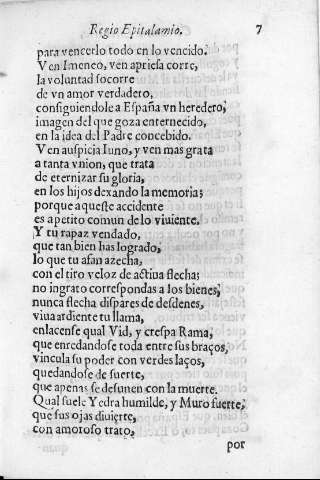 Regio Epitalamio. 7
para vencerlo todo en lo vencido.
Ven Imeneo, ven apriesa corre,
la voluntad socorre
de vn amor verdadero,
consiguiendole a España vn heredero,
imagen del que goza enternecido,
en la idea del Padre concebido.
Ven auspicia Iuno, y ven mas grata
a tanta vnion, que trata
de eternizar su gloria,
en los hijos dexando la memoria;
porque aqueste accidente
es apetito comun de lo viuiente.
Y tu rapaz vendado,
que tan bien has logrado,
lo que tu afan azecha,
con el tiro veloz de actiua flecha;
no ingrato correspondas a los bienes,
nunca flecha dispares de desdenes,
viua ardiente tu llama,
enlacense qual Vid, y crespa Rama,
que enredandose toda entre sus braços,
vincula su poder con verdes laços,
quedandose de suerte,
que apenas se desunen con la muerte.
Qual suele Yedra humilde, y Muro fuerte,
que sus ojas diuierte,
con amoroso trato,
por